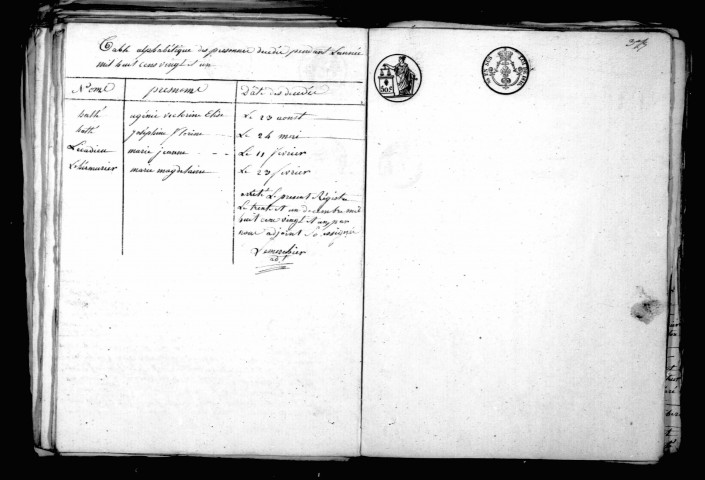 Table alphabétique des personne decédé pendant Lannée
mil huit cens vingt et un
Nome prenome Date des decédée
hathé ugénie victorine Elise Le 23 aoust
hathé joséphine florine Le 24 mai
Lecadieu marie jeanne Le 11 février
Lebermurier marie magdelaine Le 23 février
aretté Le present Régistre
Le trente et un decembre mil
huit cens vingt et un par
nous adjoint So ussigné
Lemerchier
adjt
50 c